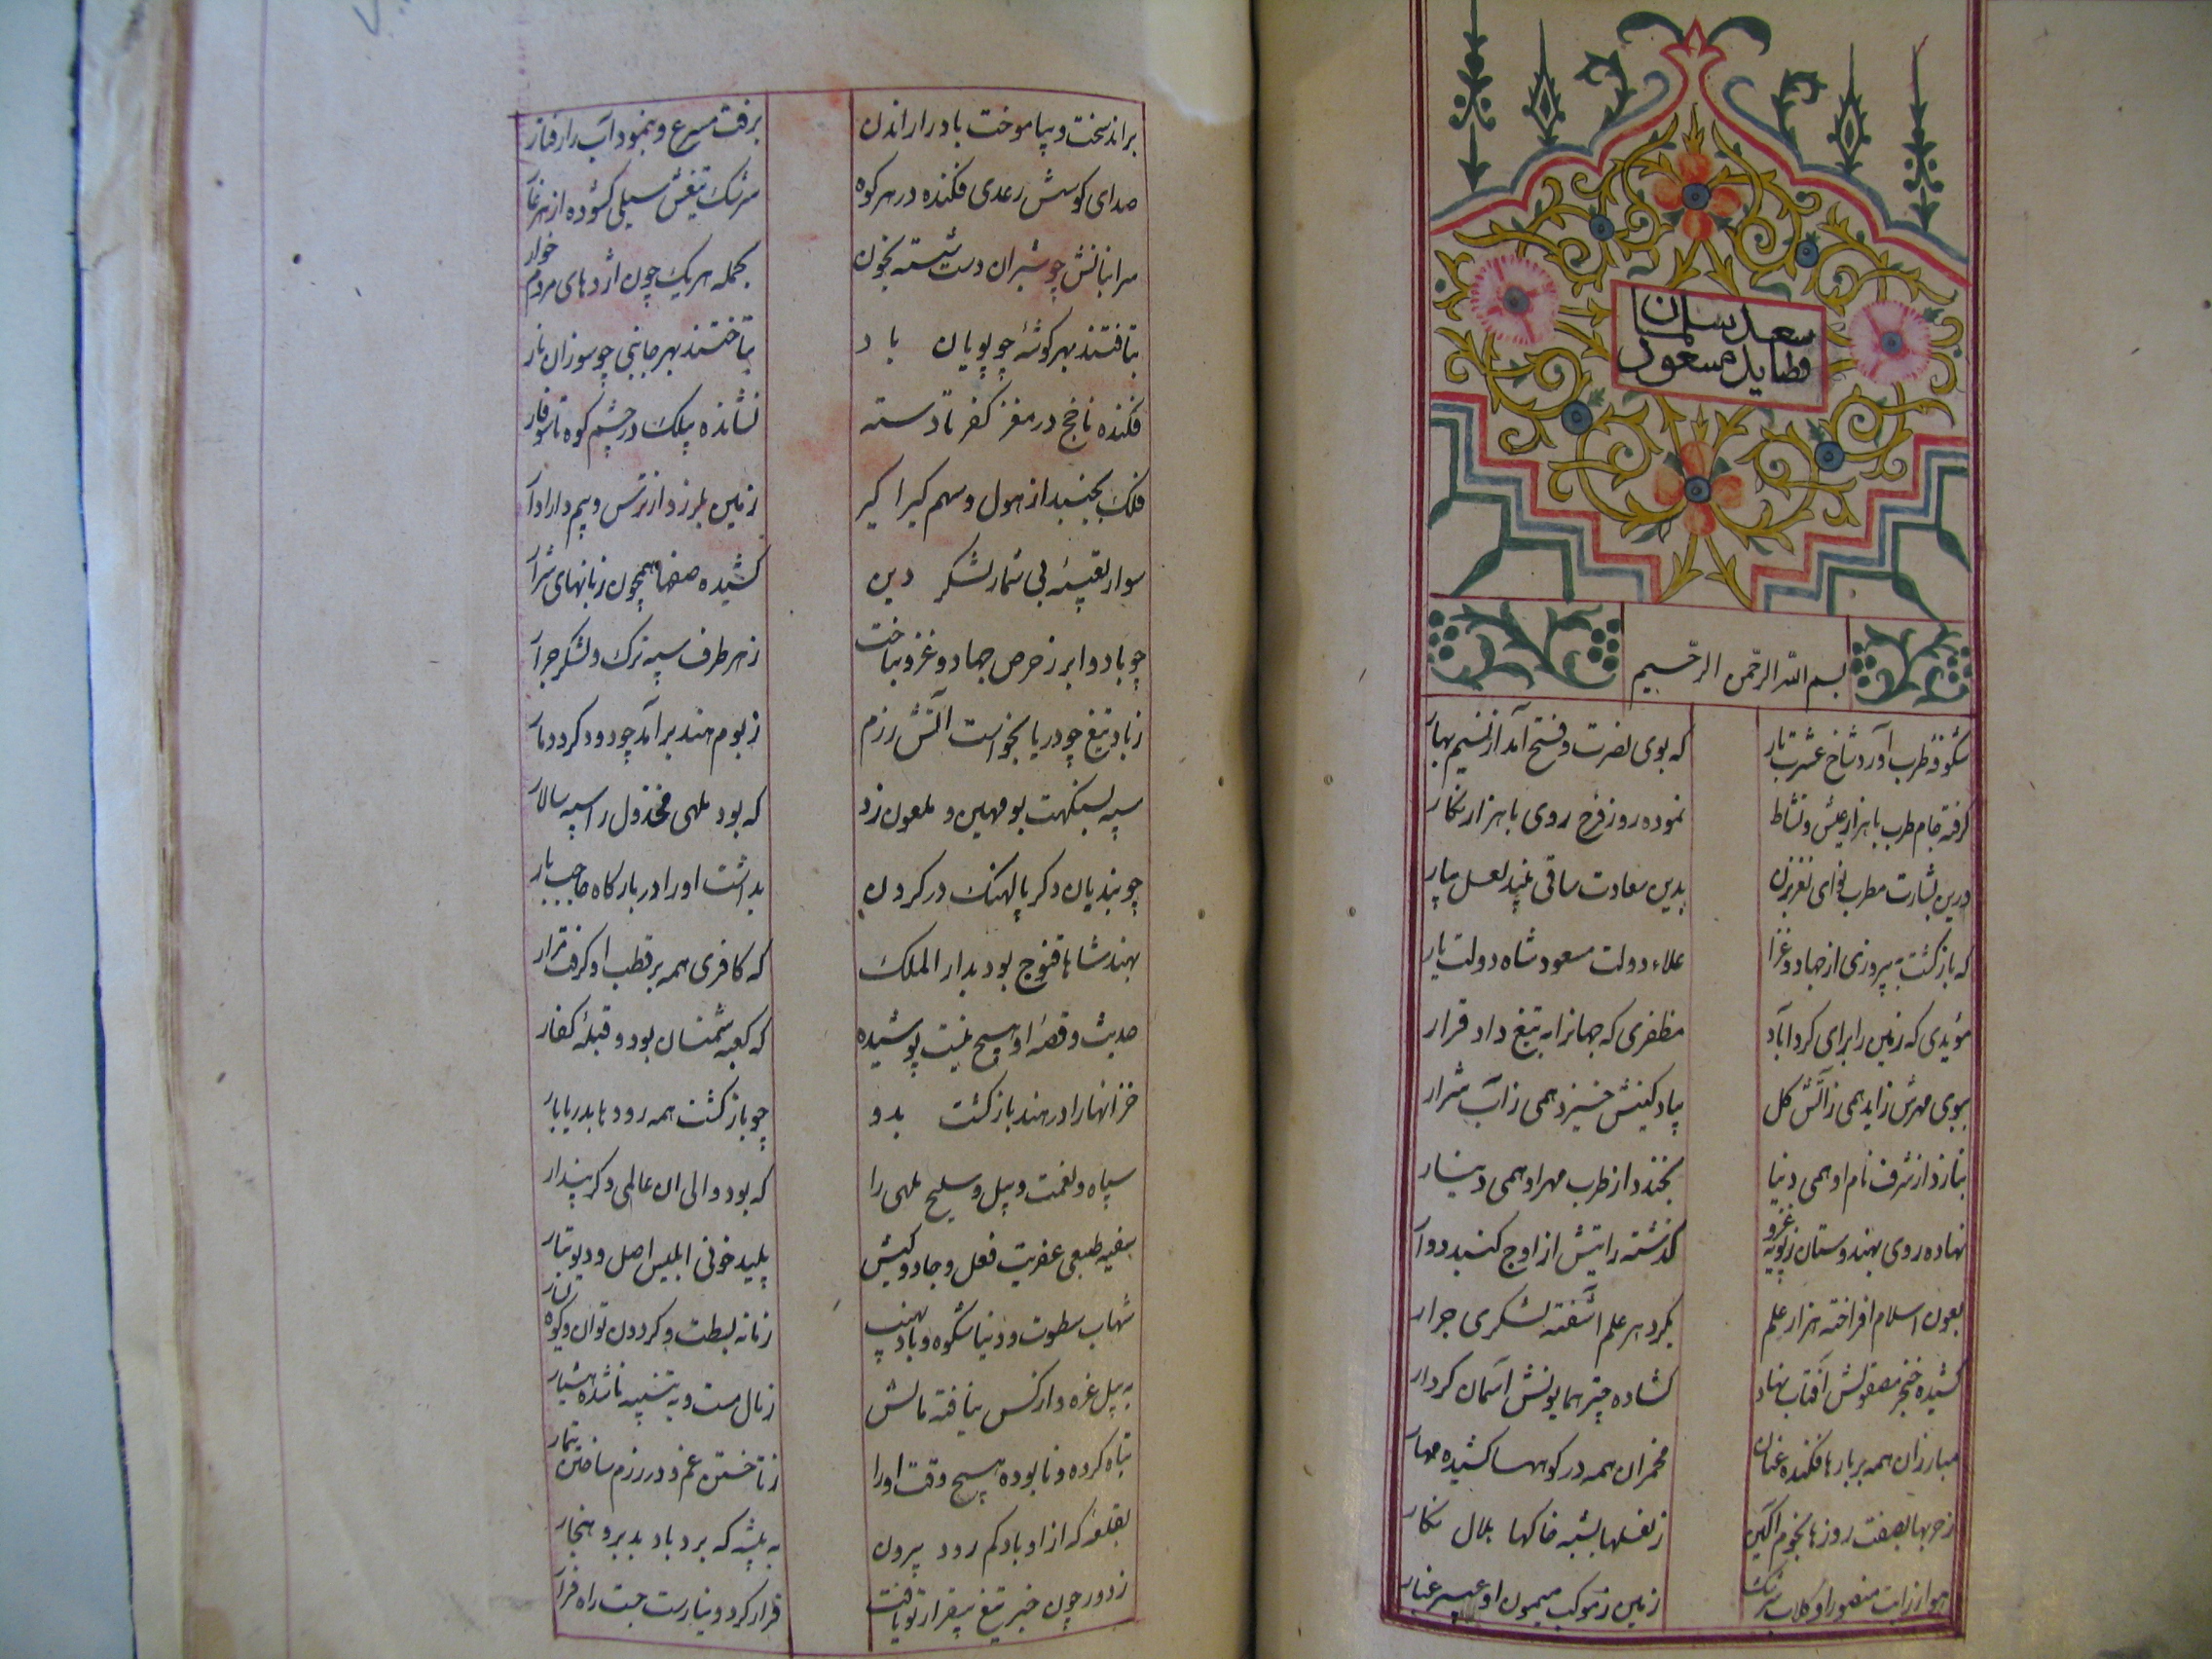 قصاید مسعود
سعد سلمان
بسم الله الرحمن الرحیم
شکوفهٔ طرب آورد شاخ عشرت بار
که بوی نصرت و فتح آمد از نسیم بهار
گرفته جام طرب با هزار عیش و نشاط
نموده روز فرخ روی با هزار نگار
درین بشارت مطرب نوای نغز بزن
بدین سعادت ساقی نبید لعل بیار
که بازگشت به پیروزی از جهاد و غزا
علاء دولت مسعود شاه دولت یار
مؤیدی که زمین را برای کرد آباد
مظفری که جهانرا به تیغ داد قرار
ببوی مهرش زاید همی ز آتش گل
بیاد کینش خیزد همی ز آب شرار
بنازد از شرف نام او همی دنیا
بخندد از طرب مهر او همی دینار
نهاده روی بهندوستان ز پویه غزو
گذشته رایتش از اوج گنبد دوار
بعون اسلام افراخته هزار علم
بگرد هر علم آشفته لشکری جرار
کشیده خنجر مصقولش آفتاب نهاد
گشاده چتر همایونش آسمان کردار
مبارزان همه بر بارها فکنده عنان
مخمران همه در کوهسا کشیده مهار
ز حربها بصفت روزها نجوم آگین
ز نعلها بشبه خاکها هلال نگار
هوا ز رایت منصور او گلاب سرشک
زمین ز موکب میمون او عبیر غبار
براند سخت و بیاموخت باد را راندن
برفت مسرع و بنمود آب را رفتار
صدای کوسش رعدی فکنده در هر کوه
سرشک تیغش سیلی گشوده از هر غار
سرابنانش چو شیران دست شسته بخون
بحمله هر یک چون اژدهای مردم خوار
بتافتند بهر گوشهٔ چو پویان باد
بتاختند بهر جانبی چو سوزان نار
فکنده ناخج در مغز کفر تا دسته
نشانده بیلک در چشم کوه تا سوفار
فلک بجنبید از هول و سهم گیرا گیر
زمین بلرزد از ترس و بیم دارادار
سوار تعبیهٔ بی شمار لشکر دین
کشیده صفها همچون زبانهای شرار
چو باد و ابر ز حرص جهاد و غزو بتاخت
ز هر طرف سپه ترک و لشکر جرار
ز باد تیغ چو دریا بخواست آتش رزم
ز بوم هند برآمد چو دود گرد دمار
سپه بسنکهت بو مهین و ملعون زد
که بود ملهی مخذول را سپه سالار
چو بندیان دگر پالهنگ در گردن
بداشت او را در بارگاه حاجب بار
بهند شاها قنوج بود دار الملک
که کافری همه بر قطب او گرفت قرار
حدیث و قصهٔ او هیچ نیست پوشیده
که کعبهٔ شمنان بود و قبلهٔ کفار
خزانها را در هند بازگشت بدو
چو بازگشت همه رودها بدریا بار
سپاه و نعمت و پیل و سلیح ملهی را
که بود والی آن عالمی دگر پندار
سفیه طبعی عفریت فعل و جادو کیش
پلید خوئی ابلیس اصل و دیو تبار
شهاب سطوت و دنیا شکوه و باد نهیب
زمانه بسطت و گردون توان و کوه
به پیل غره و از کس نیافته مالش
ز مال مست و به تنبیه ناشده هشیار
تباه کرده و نابوده هیچ وقت او را
ز تاختن غم و در رزم ساختن تیمار
بقلعهٔ که از او باد کم رود بیرون
به بیشهٔ که برد باد بد برو هنجار
ز دور چون خبر تیغ بیقرار تو یافت
قرار کرد و نیارست جست راه فرار